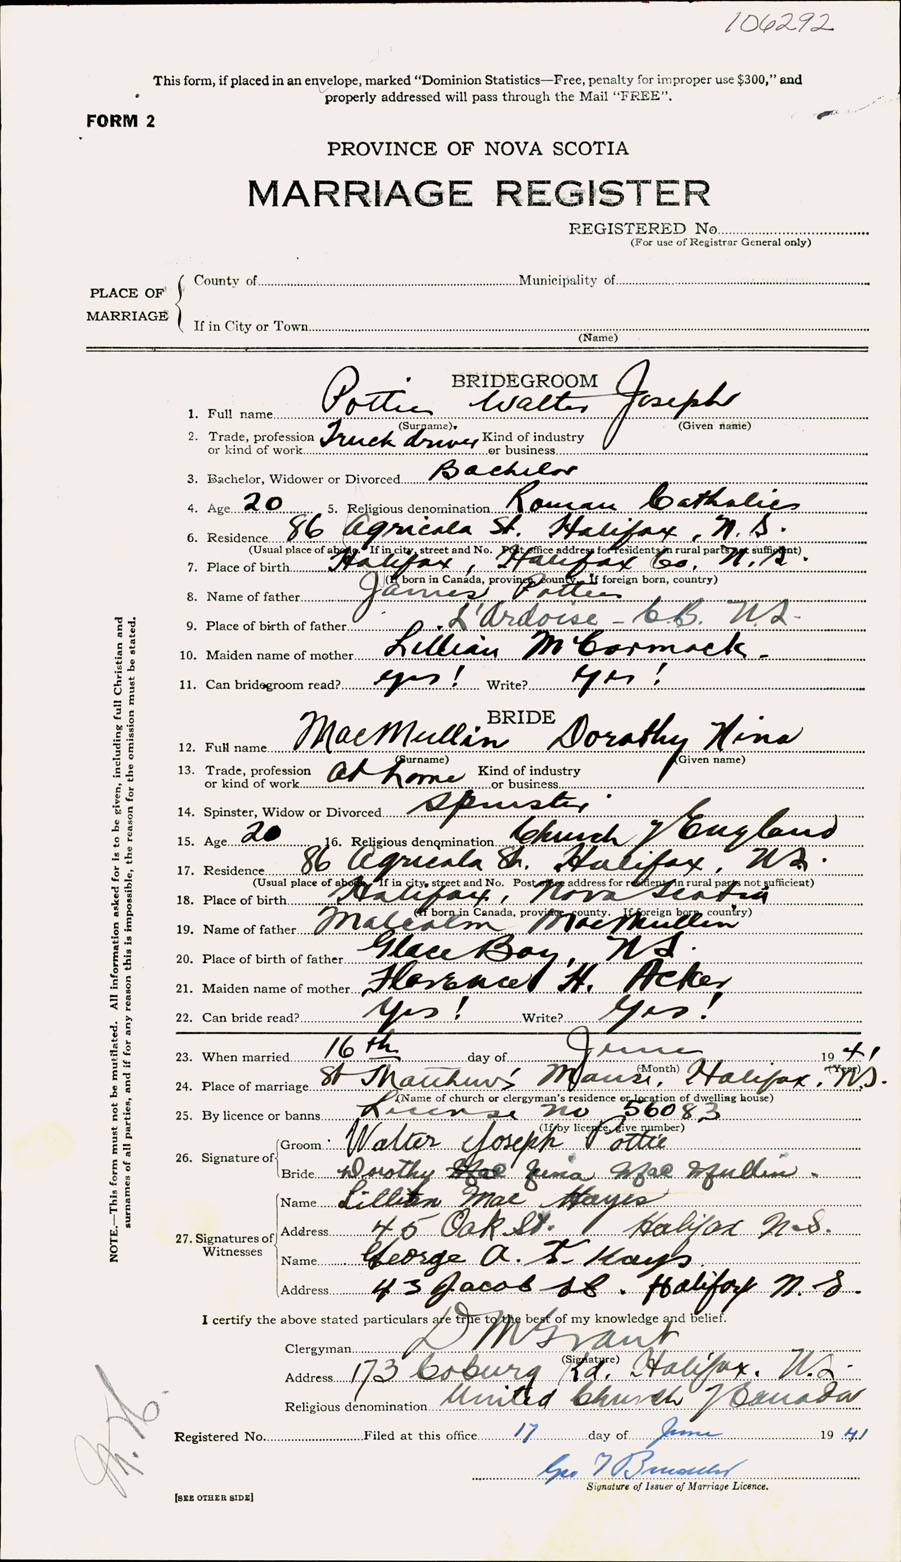 106292
This form, if placed in an envelope, marked “Dominion Statistics—Free, penalty for improper use $300,” and
properly addressed will pass through the Mail “FREE”.
FORM 2
PROVINCE OF NOVA SCOTIA
MARRIAGE REGISTER
REGISTERED No
(For use of Registrar General only)
PLACE OF MARRIAGE
County of Municipality of
If in City or Town
(Name)
BRIDEGROOM
1. Full name Pottie Walter Joseph
(Surname) (Given name)
2. Trade, profession or kind of work Truck driver Kind of industry or business
3. Bachelor, Widower or Divorced Bachelor
4. Age 20 5. Religious denomination Roman Catholic
6. Residence 86 Agricola St. Halifax, N.S.
(Usual place of abode. If in city, street and No. Post office address for residents in rural parts not sufficient)
7. Place of birth Halifax, Halifax Co. N.S.
(If born in Canada, province, county. If foreign born, country)
8. Name of father James Pottie
9. Place of birth of father L'Ardoise - C.B. N.S.
10. Maiden name of mother Lillian McCormack.
11. Can bridegroom read? yes! Write? Yes!
BRIDE
12. Full name MacMullin Dorothy Nina
(Surname) (Given name)
13. Trade, profession or kind of work at home Kind of industry or business
14. Spinster, Widow or Divorced Spinster
15. Age 20 16. Religious denomination Church of England
17. Residence 86 Agricola St. Halifax, N.S.
(Usual place of abode. If in city, street and No. Post office address for resident in rural parts not sufficient)
18. Place of birth Halifax, Nova Scotia
(If born in Canada, province, county. If foreign born, country)
19. Name of father Malcolm MacMullin
20. Place of birth of father Glace Bay, N.S.
21. Maiden name of mother Florence H. Acker
22. Can bride read? Yes! Write? Yes!
23. When married 16th day of June 1941
(Month) (Year)
24. Place of marriage St Matthew's Manse, Halifax, N.S.
(Name of church or clergyman's residence or location of dwelling house)
25. By licence or banns License no 56083
(If by licence, give number)
26. Signature of Groom Walter Joseph Pottie
Bride Dorothy Mac Nina MacMullin.
27. Signatures of Witnesses
Name Lillian Mae Hayes
Address 45 Oak St. Halifax N.S.
Name George A. F. Hays
Address 43 Jacob St. Halifax N.S.
I certify the above stated particulars are true to the best of my knowledge and belief.
Clergyman D McGrant
(Signature)
Address 173 Coburg Rd. Halifax. N.S.
Religious denomination United Church of Canada
Registered No. Filed at this office 17 day of June 1941
Geo
Signature of Issuer of Marriage Licence.
[SEE OTHER SIDE]
NOTE.—This form must not be mutilated. All information asked for is to be given, including full Christian and
surnames of all parties, and if for any reason this is impossible, the reason for the omission must be stated.